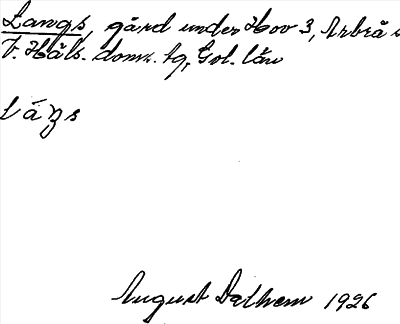 Langs, gård under Hov 3, Arbrå
V. Häls. domk. tg, Gol. län
August Dalhem 1926